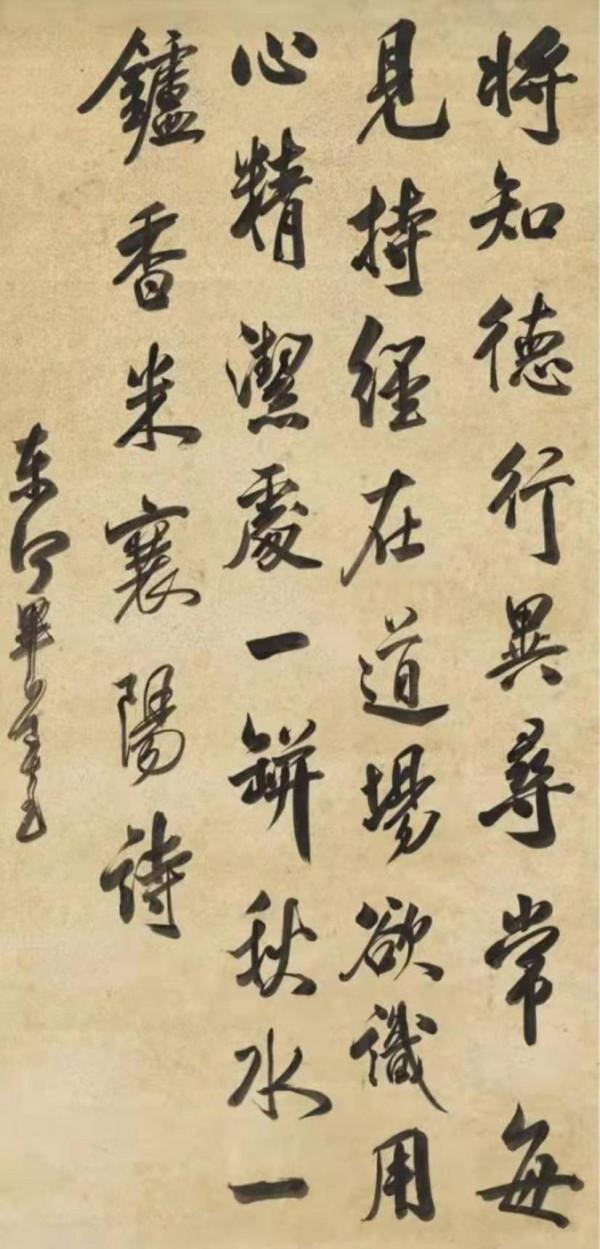 將知德行異尋常每
見持經在道場欲識用
心精潔處一缾秋水一
鑪香米襄陽詩